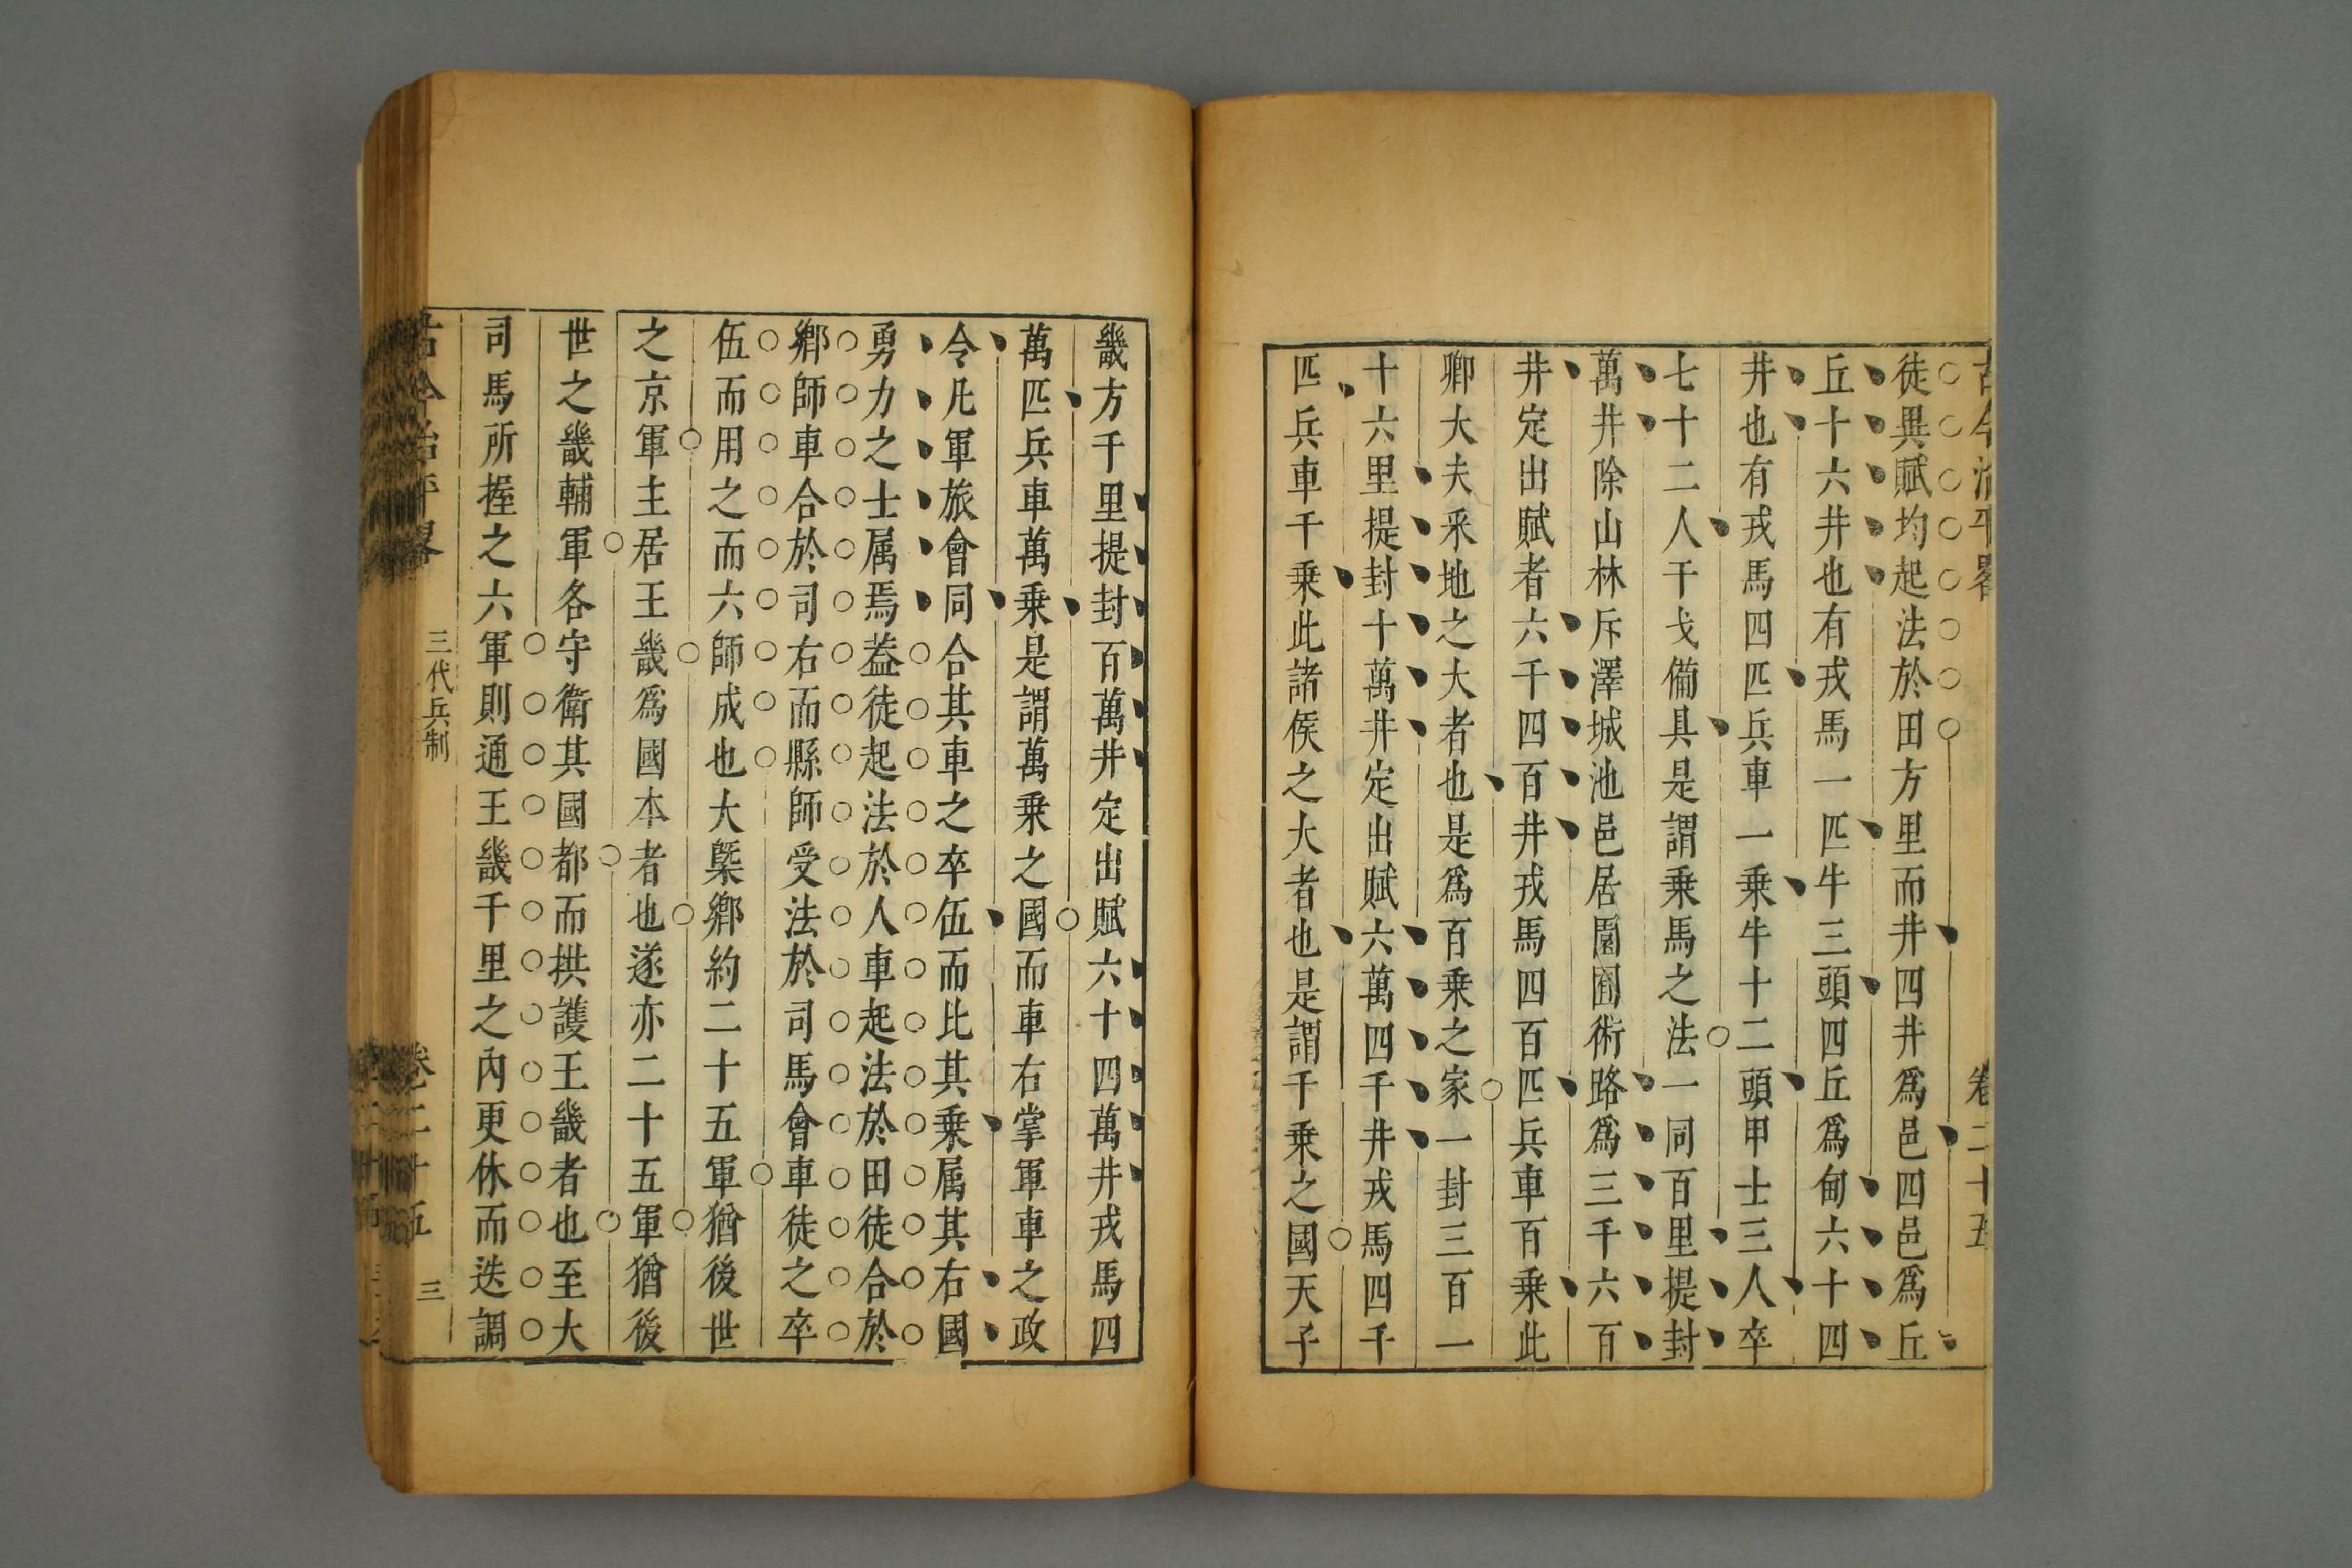 古今治平畧 卷二十五
徒異賦均起法於田方里而井四井爲邑四邑爲丘
丘十六井也有戎馬一匹牛三頭四丘爲甸六十四
井也有戎馬四匹兵車一乗牛十二頭甲士三人卒
七十二人干戈備具是謂乗馬之法一同百里提封
萬井除山林斥澤城池邑居園囿術路爲三千六百
井定出賦者六千四百井戎馬四百匹兵車百乗此
卿大夫采地之大者也是爲百乗之家一封三百一
十六里提封十萬井定出賦六萬四千井戎馬四千
匹兵車千乗此諸侯之大者也是謂千乗之國天子
畿方千里提封百萬井定出賦六十四萬井戎馬四
萬匹兵車萬乗是謂萬乗之國而車右掌軍車之政
令凡軍旅會同合其車之卒伍而比其乗属其右國
勇力之士属焉葢徒起法於人車起法於田徒合於
鄉師車合於司右而縣師受法於司馬會車徒之卒
伍而用之而六師成也大槩鄉約二十五軍猶後世
之京軍主居王畿爲國本者也遂亦二十五軍猶後
世之畿輔軍各守衛其國都而拱護王畿者也至大
司馬所握之六軍則通王畿千里之內更休而迭調
古今治平畧 三代兵制 卷二十五 三